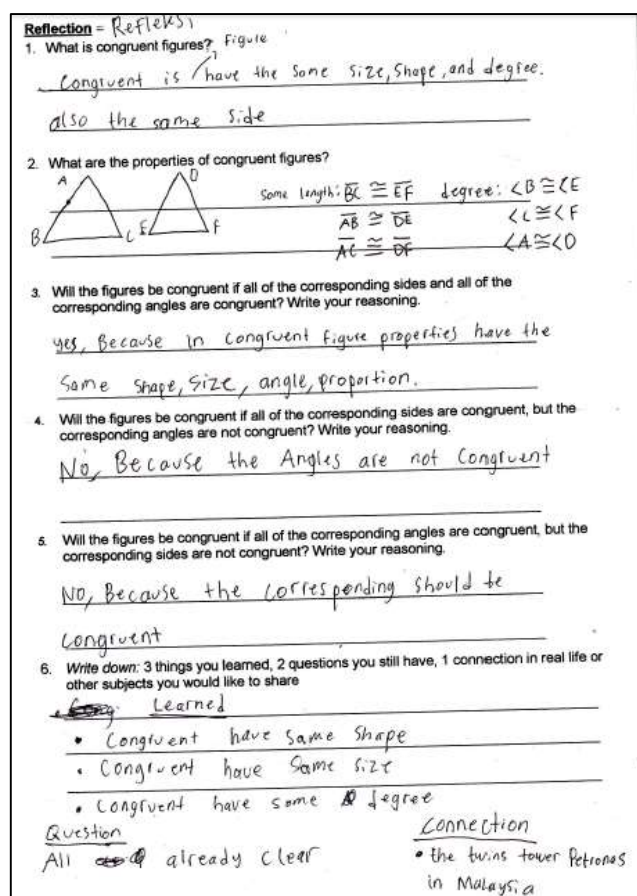 Reflection = Refleksi
1. What is congruent figures? figure
Congruent is have the same size, shape, and degree.
also the same side
2. What are the properties of congruent figures?
A D
B C E F
same length: BC ≅ EF degree: <B ≅ <E
AB ≅ DE <C ≅ <F
AC ≅ DF <A ≅ <D
3. Will the figures be congruent if all of the corresponding sides and all of the
corresponding angles are congruent? Write your reasoning.
yes, Because in congruent figure properties have the
same shape, size, angle, proportion.
4. Will the figures be congruent if all of the corresponding sides are congruent, but the
corresponding angles are not congruent? Write your reasoning.
No, Because the Angles are not Congruent
5. Will the figures be congruent if all of the corresponding angles are congruent, but the
corresponding sides are not congruent? Write your reasoning.
NO, Because the corresponding should be
congruent
6. Write down: 3 things you learned, 2 questions you still have, 1 connection in real life or
other subjects you would like to share
Learned
• Congruent have same shape
• Congruent have same size
• Congruent have same degree
Question
All already clear
Connection
• the twins tower Petronas
in Malaysia